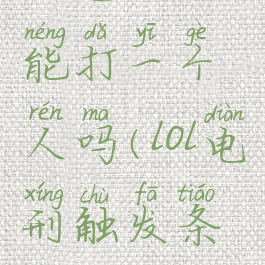 néng dǎ yī gè
能打一个
rén ma diàn
人吗(lol电
xíng chù fā tiáo
刑触发条